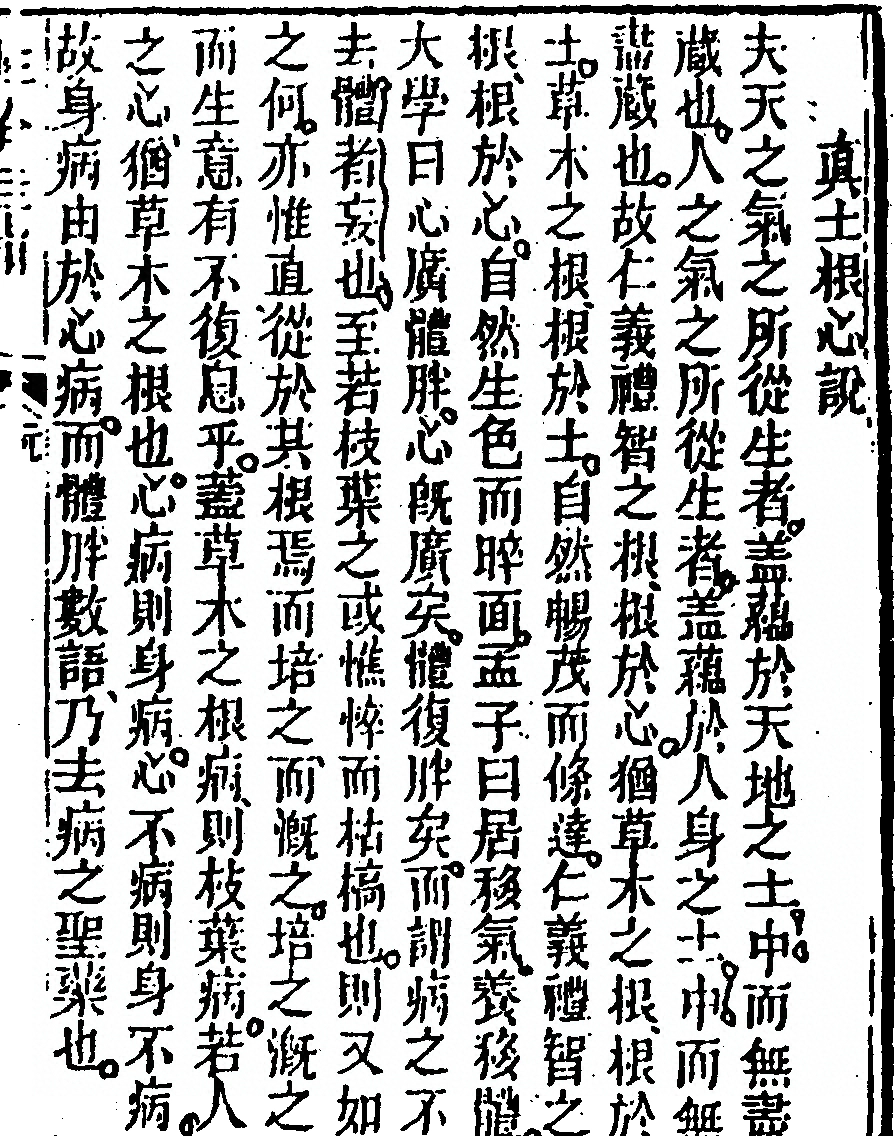 真土根心說
夫天之氣之所從生者蓋藴於天地之土中而無盡
藏也人之氣之所從生者蓋藴於人身之土中而無
盡藏也故仁義禮智之根根於心猶草木之根根於
土草木之根根於土自然暢茂而條達仁義禮智之
根根於心自然生色而睟面孟子曰居移氣養移體
大學曰心廣體胖心旣廣矣體復胖矣而謂病之不
去體者妄也至若枝葉之或憔悴而枯槁也則又如
之何亦惟直從於其根焉而培之而漑之培之漑之
而生意有不復息乎蓋草木之根病則枝葉病若人
之心猶草木之根也心病則身病心不病則身不病
故身病由於心病而體胖數語乃去病之聖藥也